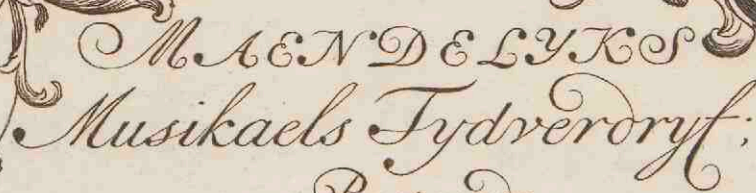 MAENDELYKS
Musikaels Tydverdryf;